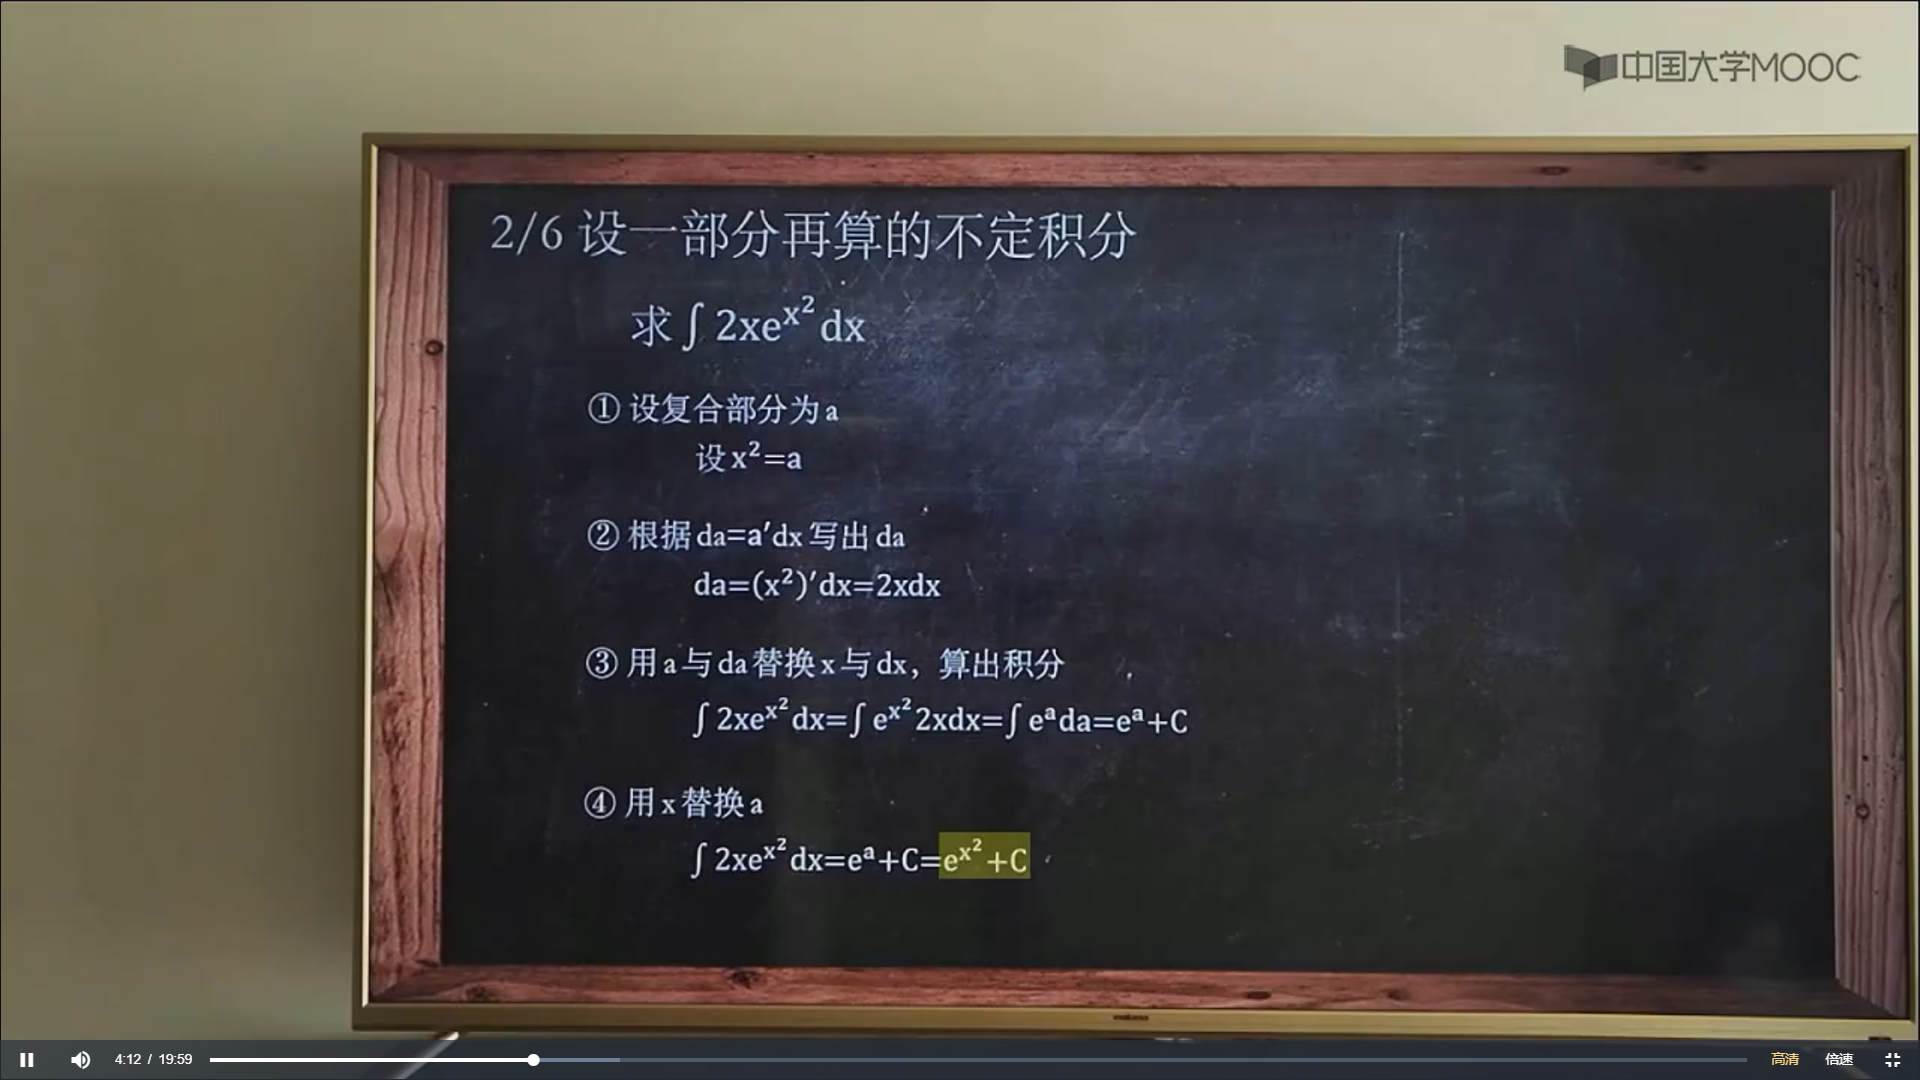 中国大学MOOC
2/6 设一部分再算的不定积分
求∫2xe^{x²}dx
① 设复合部分为a
设x²=a
② 根据da=a′dx写出da
da=(x²)′dx=2xdx
③ 用a与da替换x与dx，算出积分
∫2xe^{x²}dx=∫e^{x²}2xdx=∫eᵃda=eᵃ+C
④ 用x替换a
∫2xe^{x²}dx=eᵃ+C=e^{x²}+C
4:12 / 19:59
高清
倍速